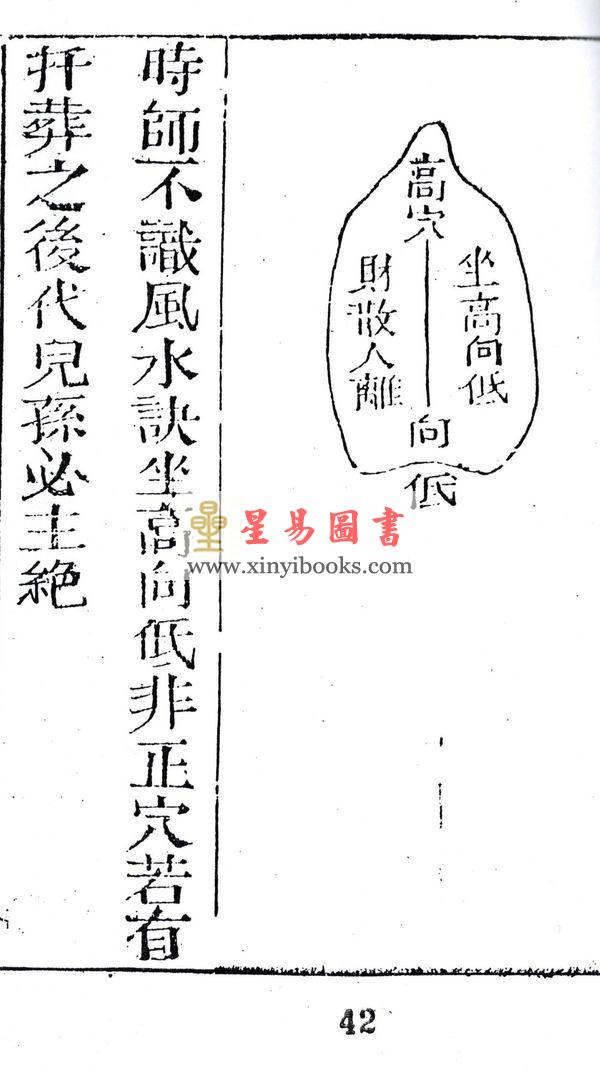 高穴
坐高向低
財散人離
向
低
時師不識風水訣坐高向低非正穴若有
扦葬之後代兒孫必主絕
星易圖書
www.xinyibooks.com
42